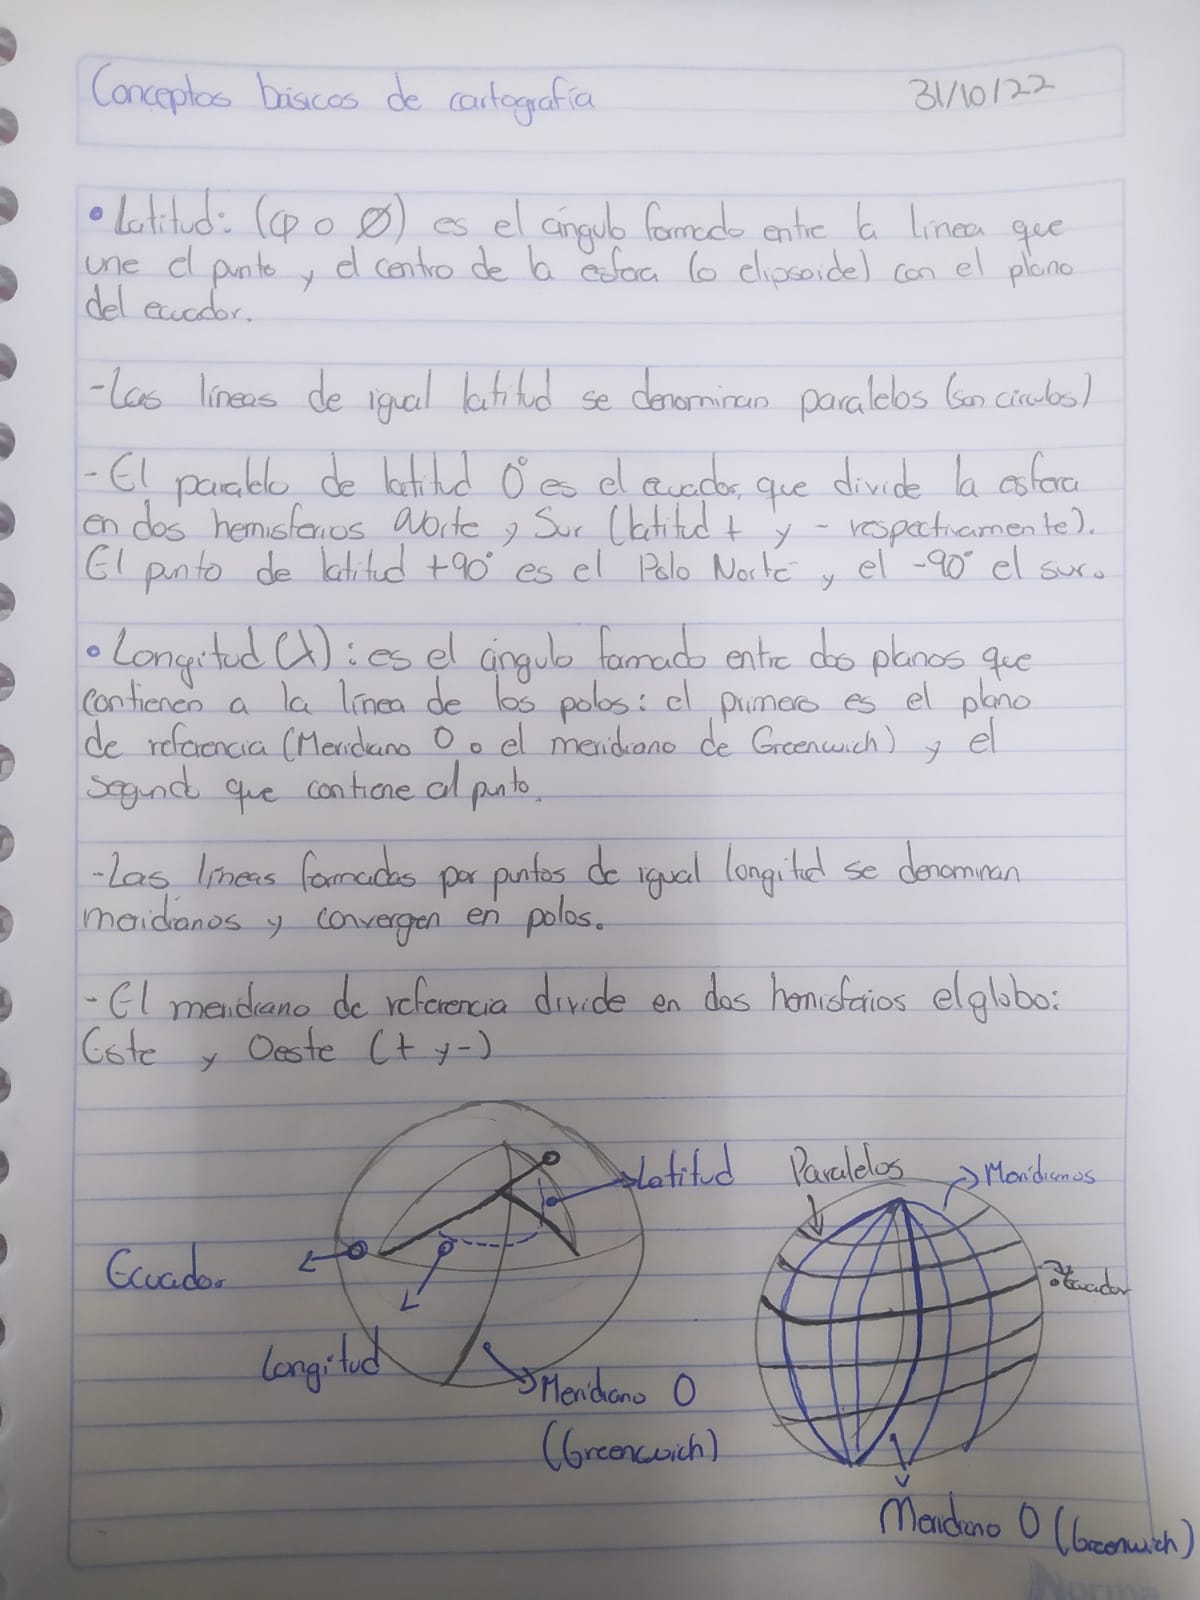 Conceptos básicos de cartografía 31/10/22
• Latitud: (φ o Ø) es el ángulo formado entre la línea que
une el punto y el centro de la esfera (o elipsoide) con el plano
del ecuador.
-Las líneas de igual latitud se denominan paralelos (son círculos)
- El paralelo de latitud 0° es el ecuador, que divide la esfera
en dos hemisferios Norte y Sur (latitud + y - respectivamente).
El punto de latitud +90° es el Polo Norte y el -90° el sur.
• Longitud (λ): es el ángulo formado entre dos planos que
contienen a la línea de los polos: el primero es el plano
de referencia (Meridiano 0 o el meridiano de Greenwich) y el
segundo que contiene al punto.
-Las líneas formadas por puntos de igual longitud se denominan
meridianos y convergen en polos.
- El meridiano de referencia divide en dos hemisferios el globo:
Este y Oeste (+ y -)
Latitud
Paralelos
Meridianos
Ecuador
Ecuador
Longitud
Meridiano 0
(Greenwich)
Meridiano 0 (Greenwich)
Norma